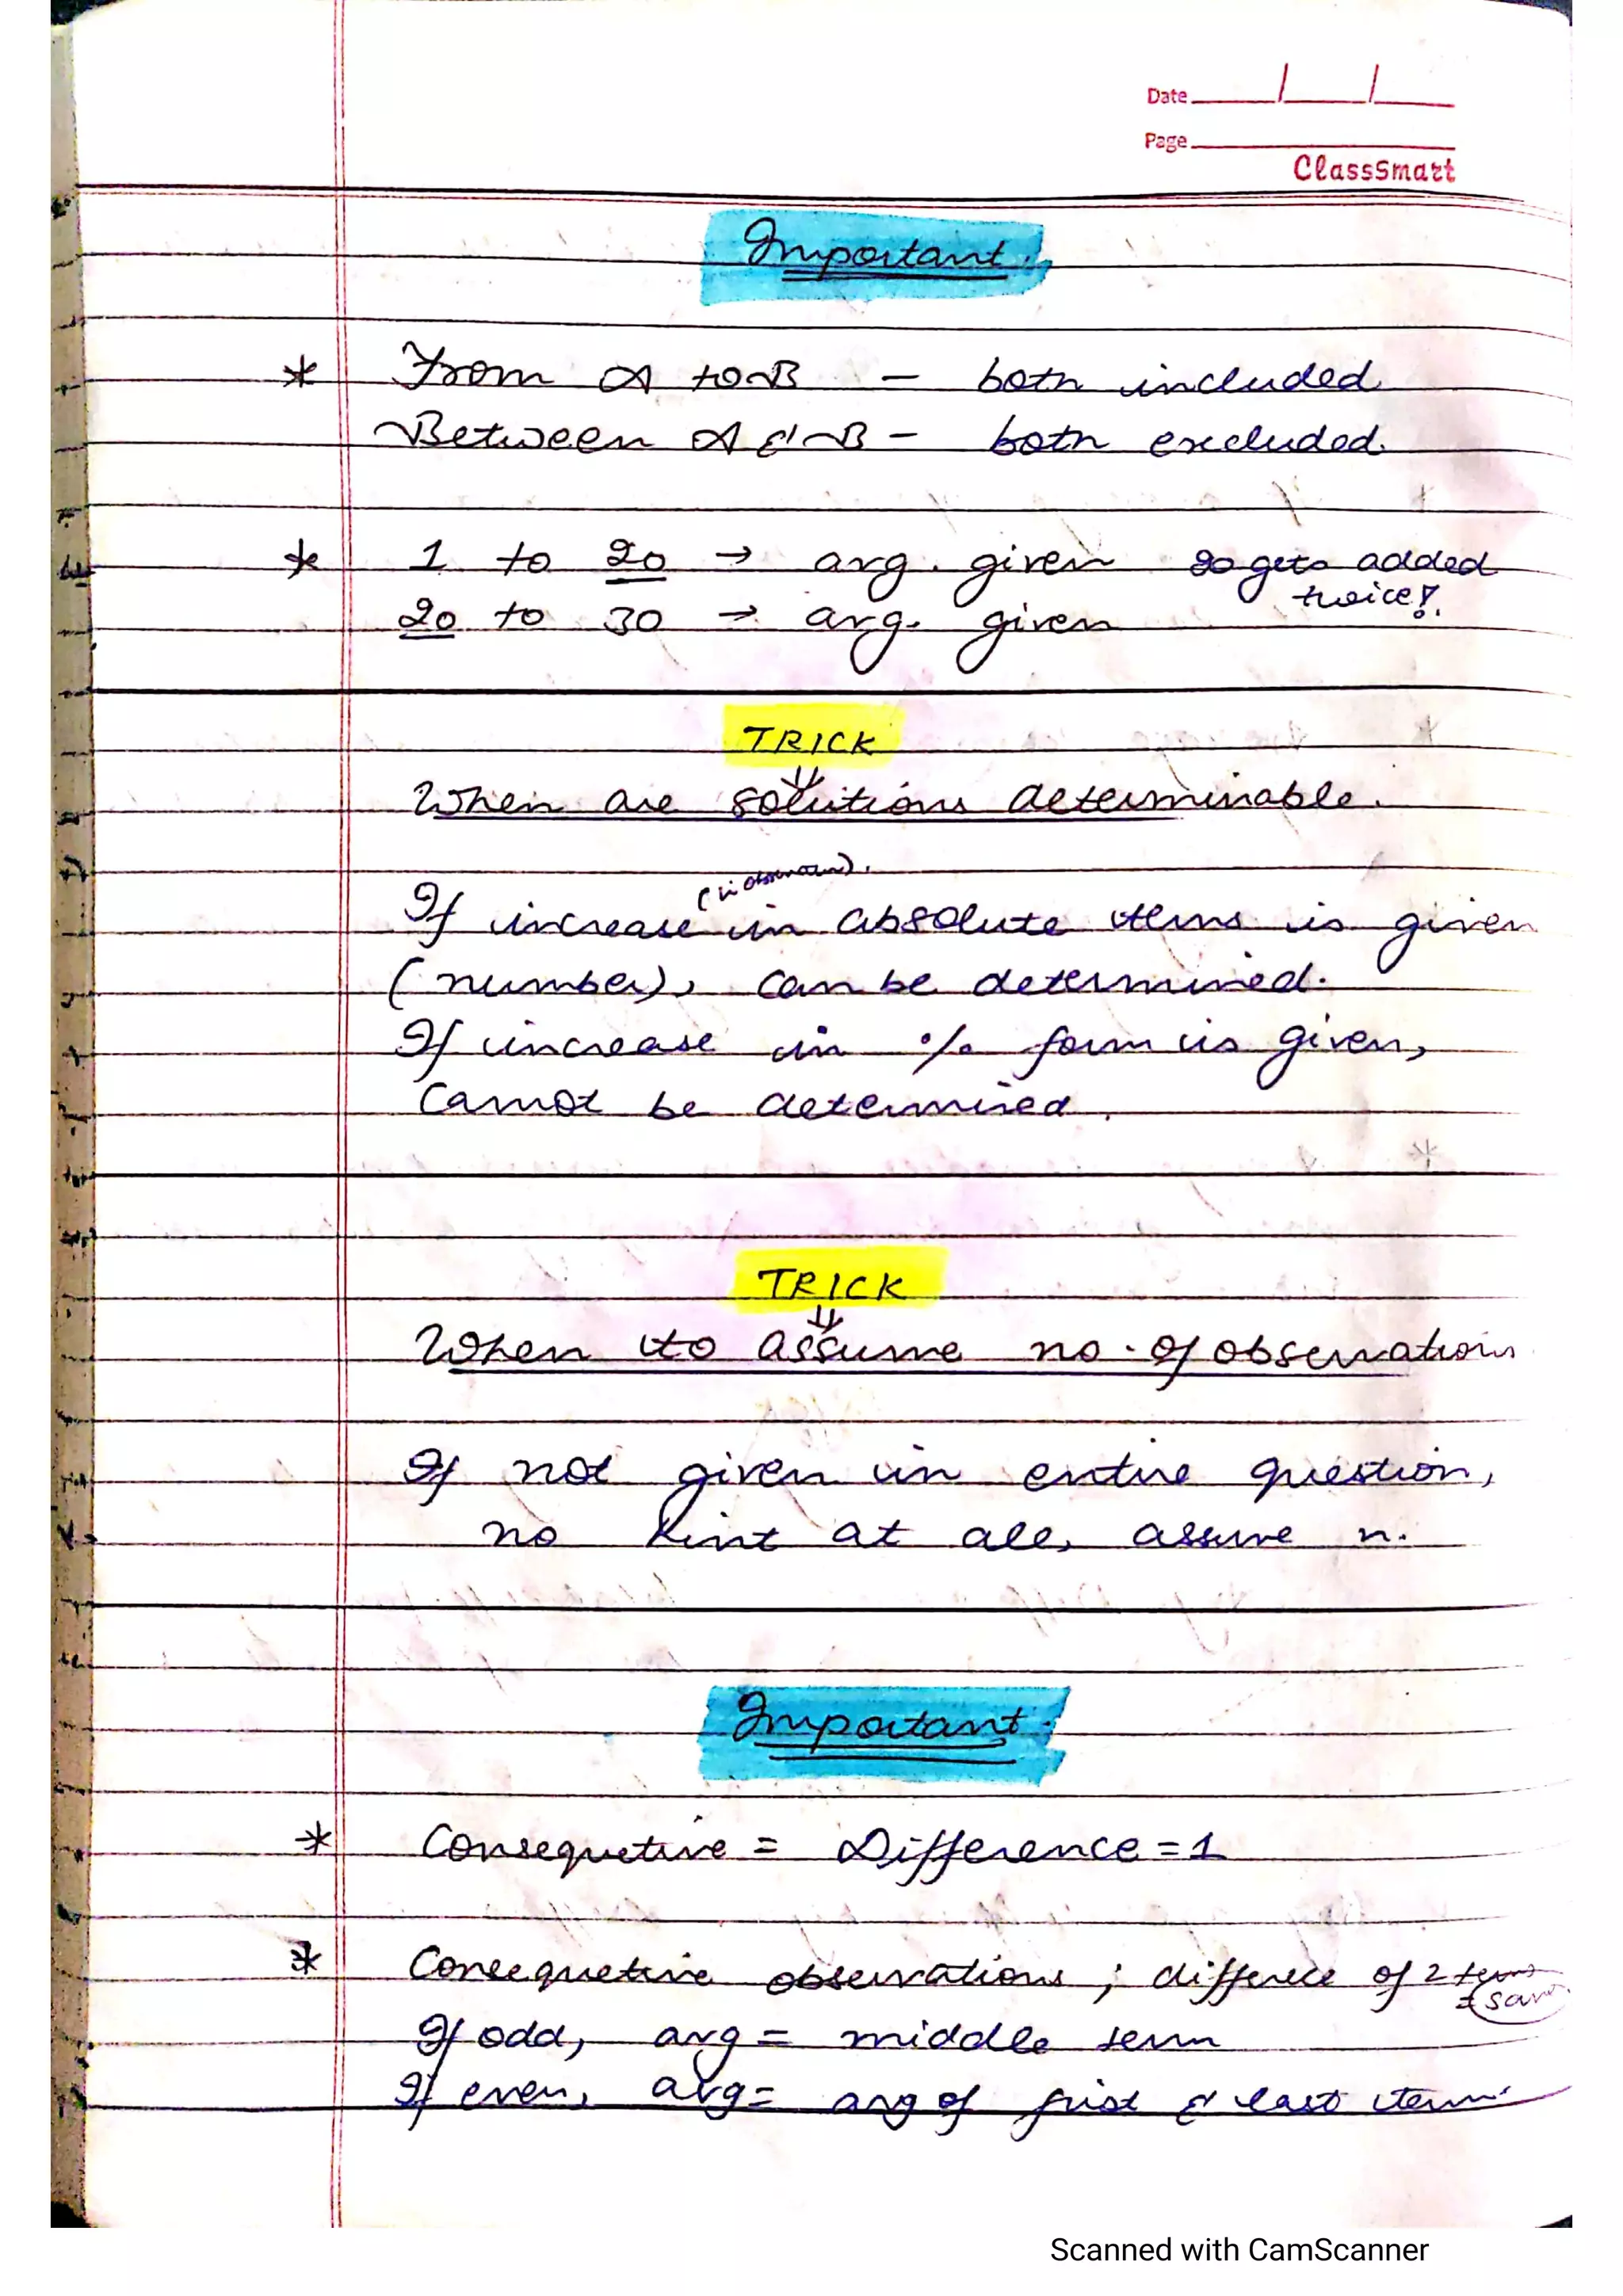 Date / /
Page
ClassSmart
Important.
* From A to B - both included
Between A & B - both excluded.
* 1 to 20 → avg. given 20 gets added
twice!.
20 to 30 → avg. given
TRICK
⇓
When are solutions determinable.
(in observation).
If increase in absolute terms is given
(number), can be determined.
If increase in % form is given,
Cannot be determined.
TRICK
⇓
When to assume no. of observations
If not given in entire question,
no hint at all, assume n.
Important.
* Consequetive = Difference = 1
* Consequetive observations ; differece of 2 terms
= sam
If odd, avg = middle term
If even, avg = avg of first & last term
Scanned with CamScanner